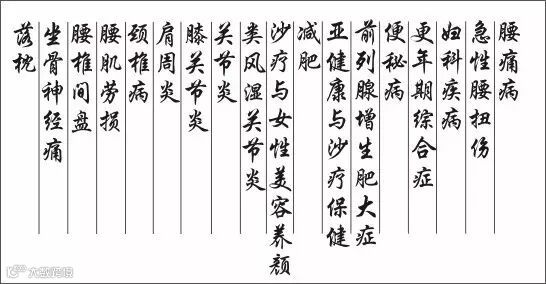 腰痛病
急性腰扭伤
妇科疾病
更年期综合症
便秘病
前列腺增生肥大症
亚健康与沙疗保健
减肥
沙疗与女性美容养颜
类风湿关节炎
关节炎
膝关节炎
肩周炎
颈椎病
腰肌劳损
腰椎间盘
坐骨神经痛
落枕